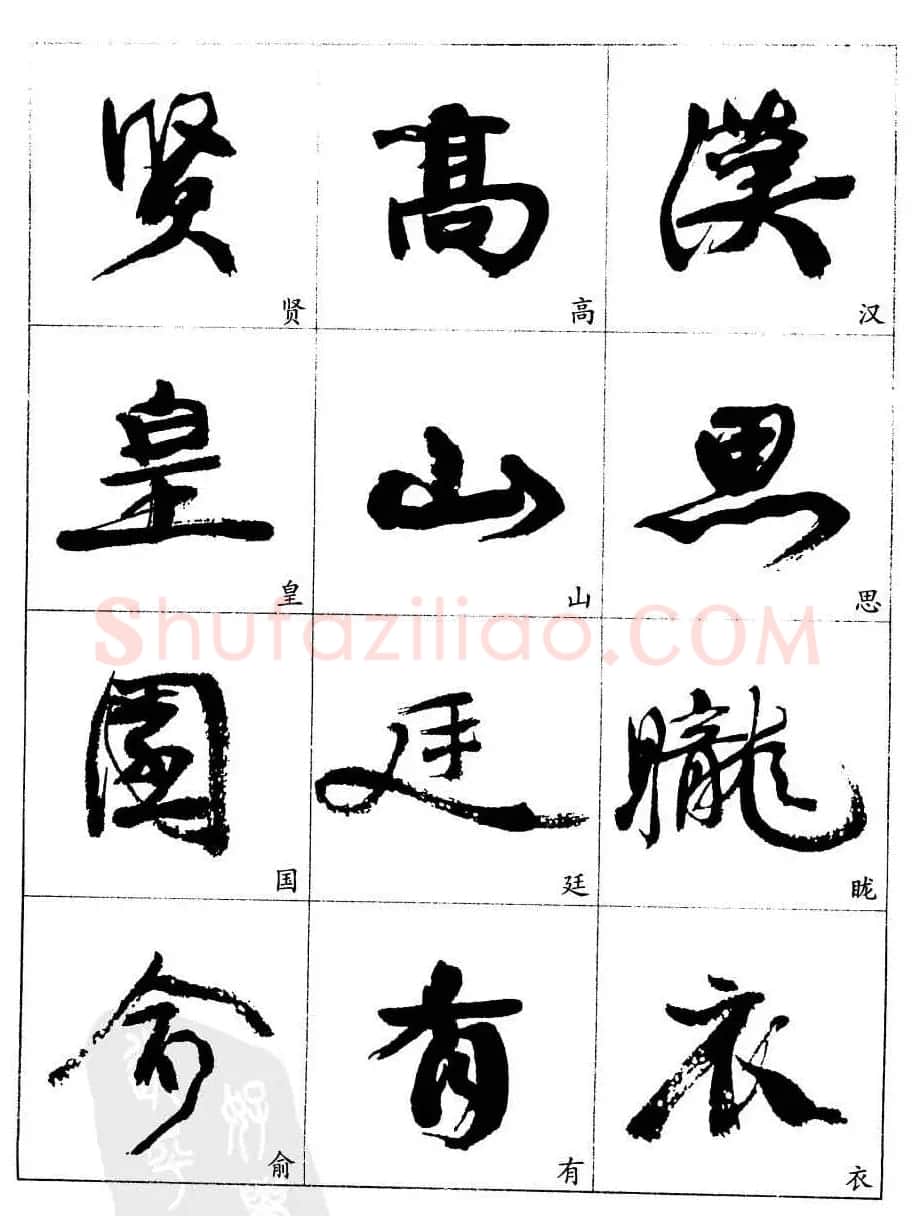 贤 髙 漢
贤 高 汉
皇 山 思
皇 山 思
Shufaziliao.COM
國 廷 矓
国 廷 眬
俞 有 衣
俞 有 衣